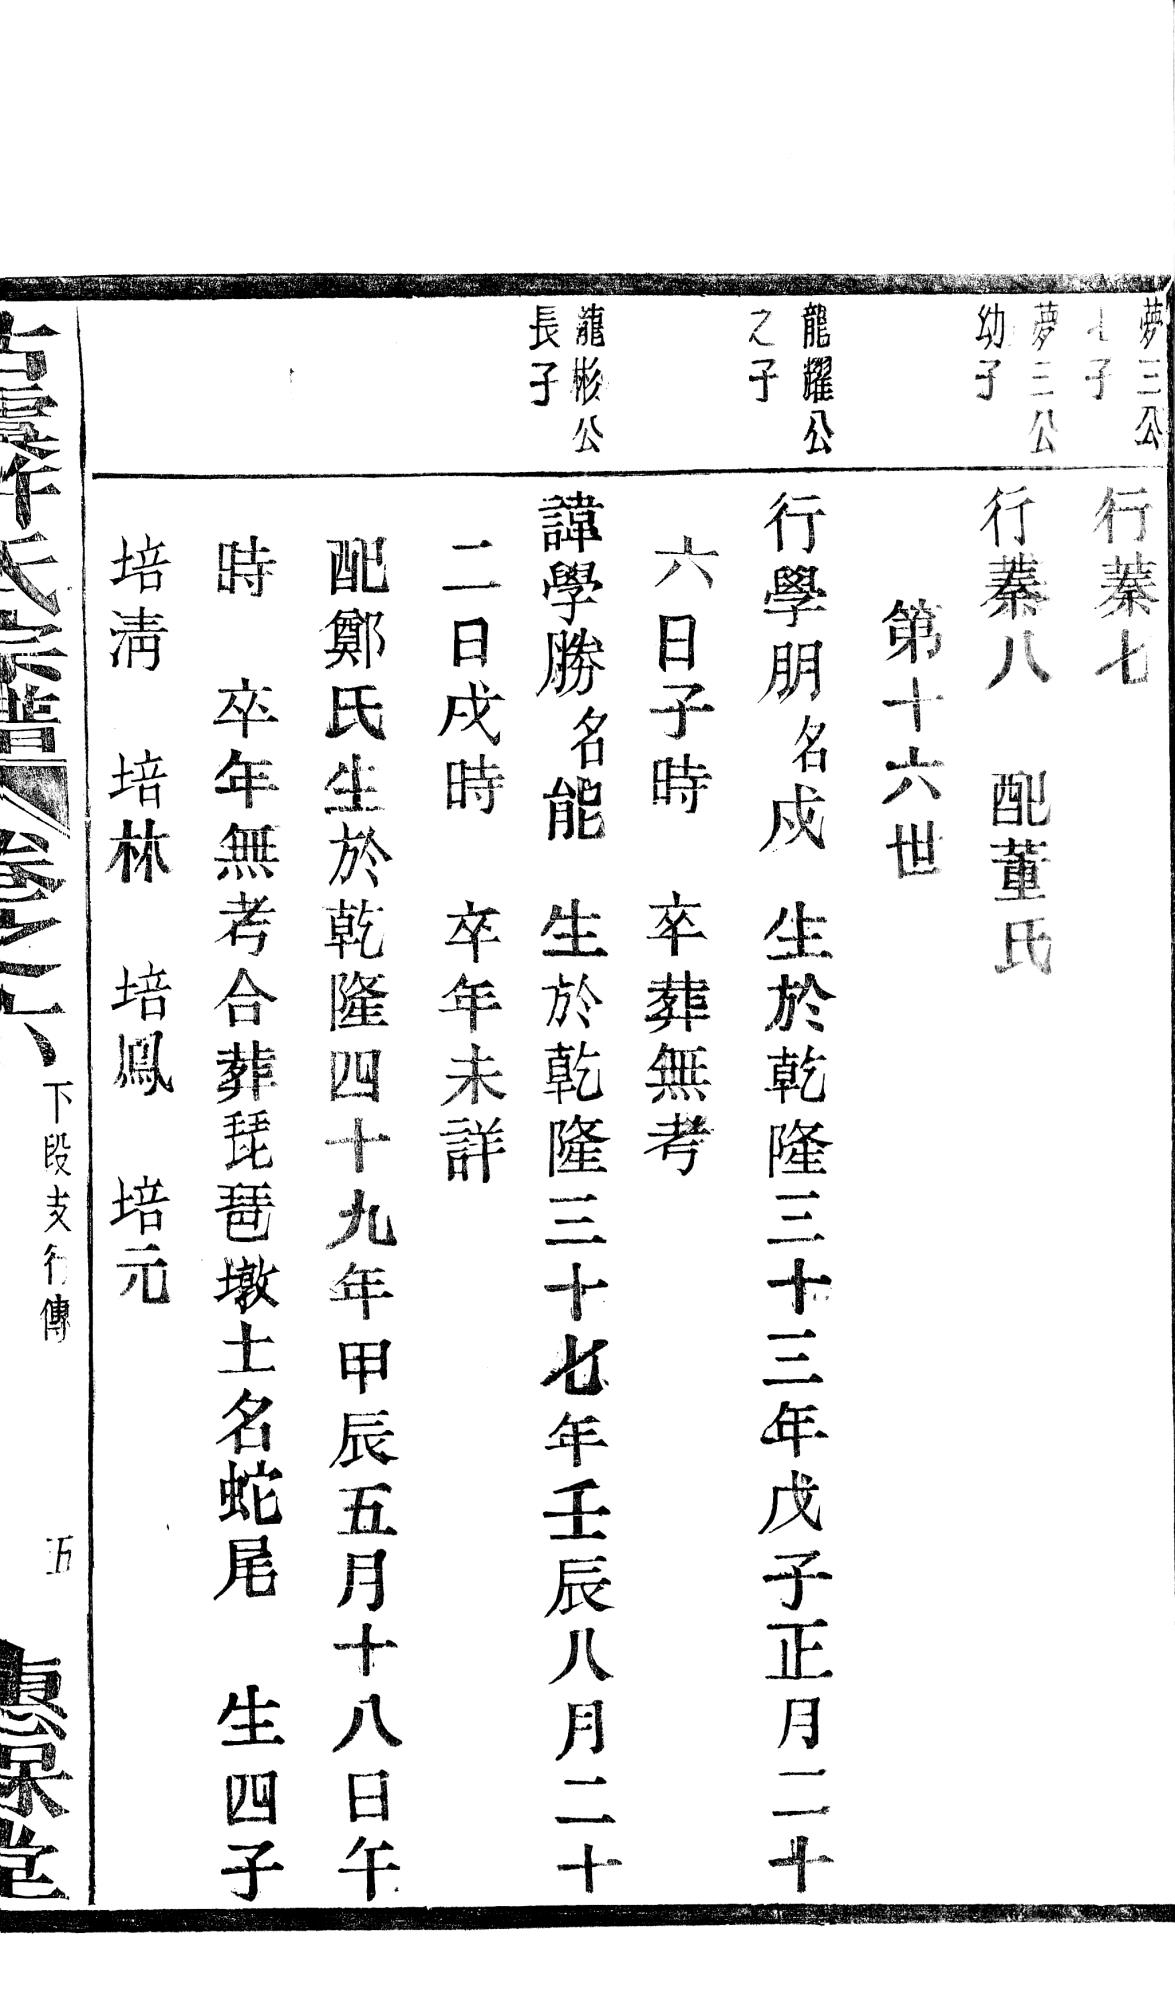 夢三公
七子
行蓁七
夢三公
幼子
行蓁八　配董氏
第十六世
龍耀公
之子
行學朋名成　生於乾隆三十三年戊子正月二十
六日子時　卒葬無考
龍彬公
長子
諱學勝名能　生於乾隆三十七年壬辰八月二十
二日戌時　卒年未詳
配鄭氏生於乾隆四十九年甲辰五月十八日午
時　卒年無考合葬琵琶墩土名蛇尾　生四子
培淸　培林　培鳳　培元
古虞許氏宗譜　卷之六　下段支行傳　五　惠保堂